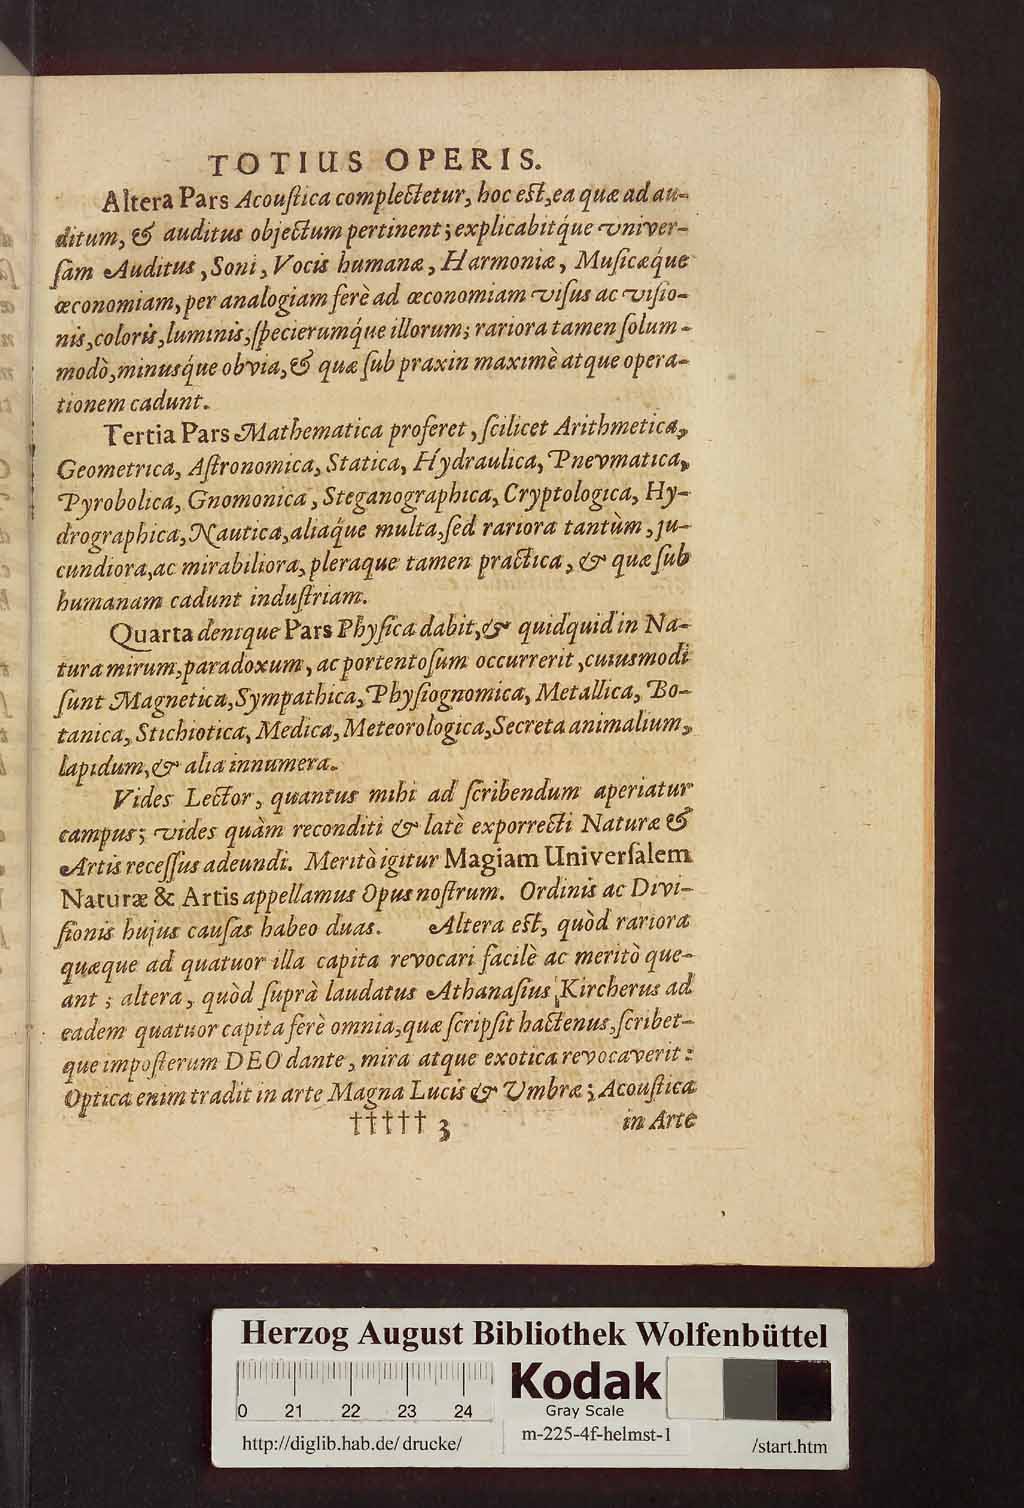 TOTIUS OPERIS.
Altera Pars Acouſtica complectetur, hoc eſt, ea quæ ad au-
ditum, & auditus objectum pertinent; explicabitq́ue univer-
ſam Auditus, Soni, Vocis humanæ, Harmoniæ, Muſicæq́ue
œconomiam, per analogiam ferè ad œconomiam viſus ac viſio-
nis, coloris, luminis, ſpecierumq́ue illorum; rariora tamen ſolum-
modò, minusq́ue obvia, & quæ ſub praxin maximè atque opera-
tionem cadunt.
Tertia Pars Mathematica proferet, ſcilicet Arithmetica,
Geometrica, Aſtronomica, Statica, Hydraulica, Pnevmatica,
Pyrobolica, Gnomonica, Steganographica, Cryptologica, Hy-
drographica, Nautica, aliaq́ue multa, ſed rariora tantùm, ju-
cundiora, ac mirabiliora, pleraque tamen practica, & quæ ſub
humanam cadunt induſtriam.
Quarta denique Pars Phyſica dabit, & quidquid in Na-
tura mirum, paradoxum, ac portentoſum occurrerit, cuiusmodi
ſunt Magnetica, Sympathica, Phyſiognomica, Metallica, Bo-
tanica, Stichiotica, Medica, Meteorologica, Secreta animalium,
lapidum, & alia innumera.
Vides Lector, quantus mihi ad ſcribendum aperiatur
campus; vides quàm reconditi & latè exporrecti Naturæ &
Artis receſſus adeundi. Meritò igitur Magiam Univerſalem
Naturæ & Artis appellamus Opus noſtrum. Ordinis ac Divi-
ſionis hujus cauſas habeo duas. Altera eſt, quòd rariora
quæque ad quatuor illa capita revocari facilè ac meritò que-
ant; altera, quòd ſuprà laudatus Athanaſius Kircherus ad
eadem quatuor capita ferè omnia, quæ ſcripſit hactenus, ſcribet-
que impoſterum DEO dante, mira atque exotica revocaverit:
Optica enim tradit in arte Magna Lucis & Umbræ; Acouſtica
††††† 3 in Arte
Herzog August Bibliothek Wolfenbüttel
0 21 22 23 24
Kodak
Gray Scale
http://diglib.hab.de/drucke/ m-225-4f-helmst-1 /start.htm